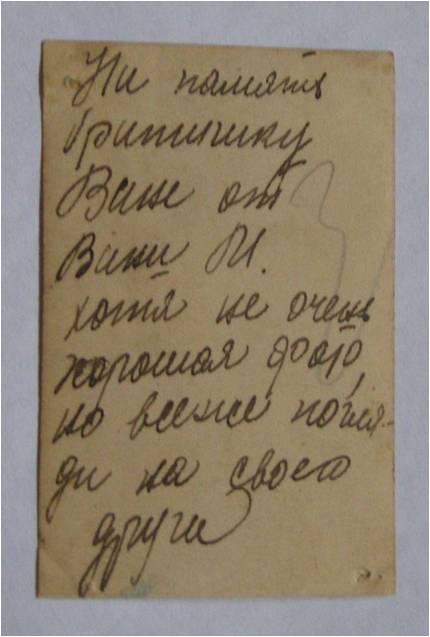 На память
братишку
Ване от
Вани М.
хотя не очень
хорошая фото,
но всеже погля-
ди на своего
друга